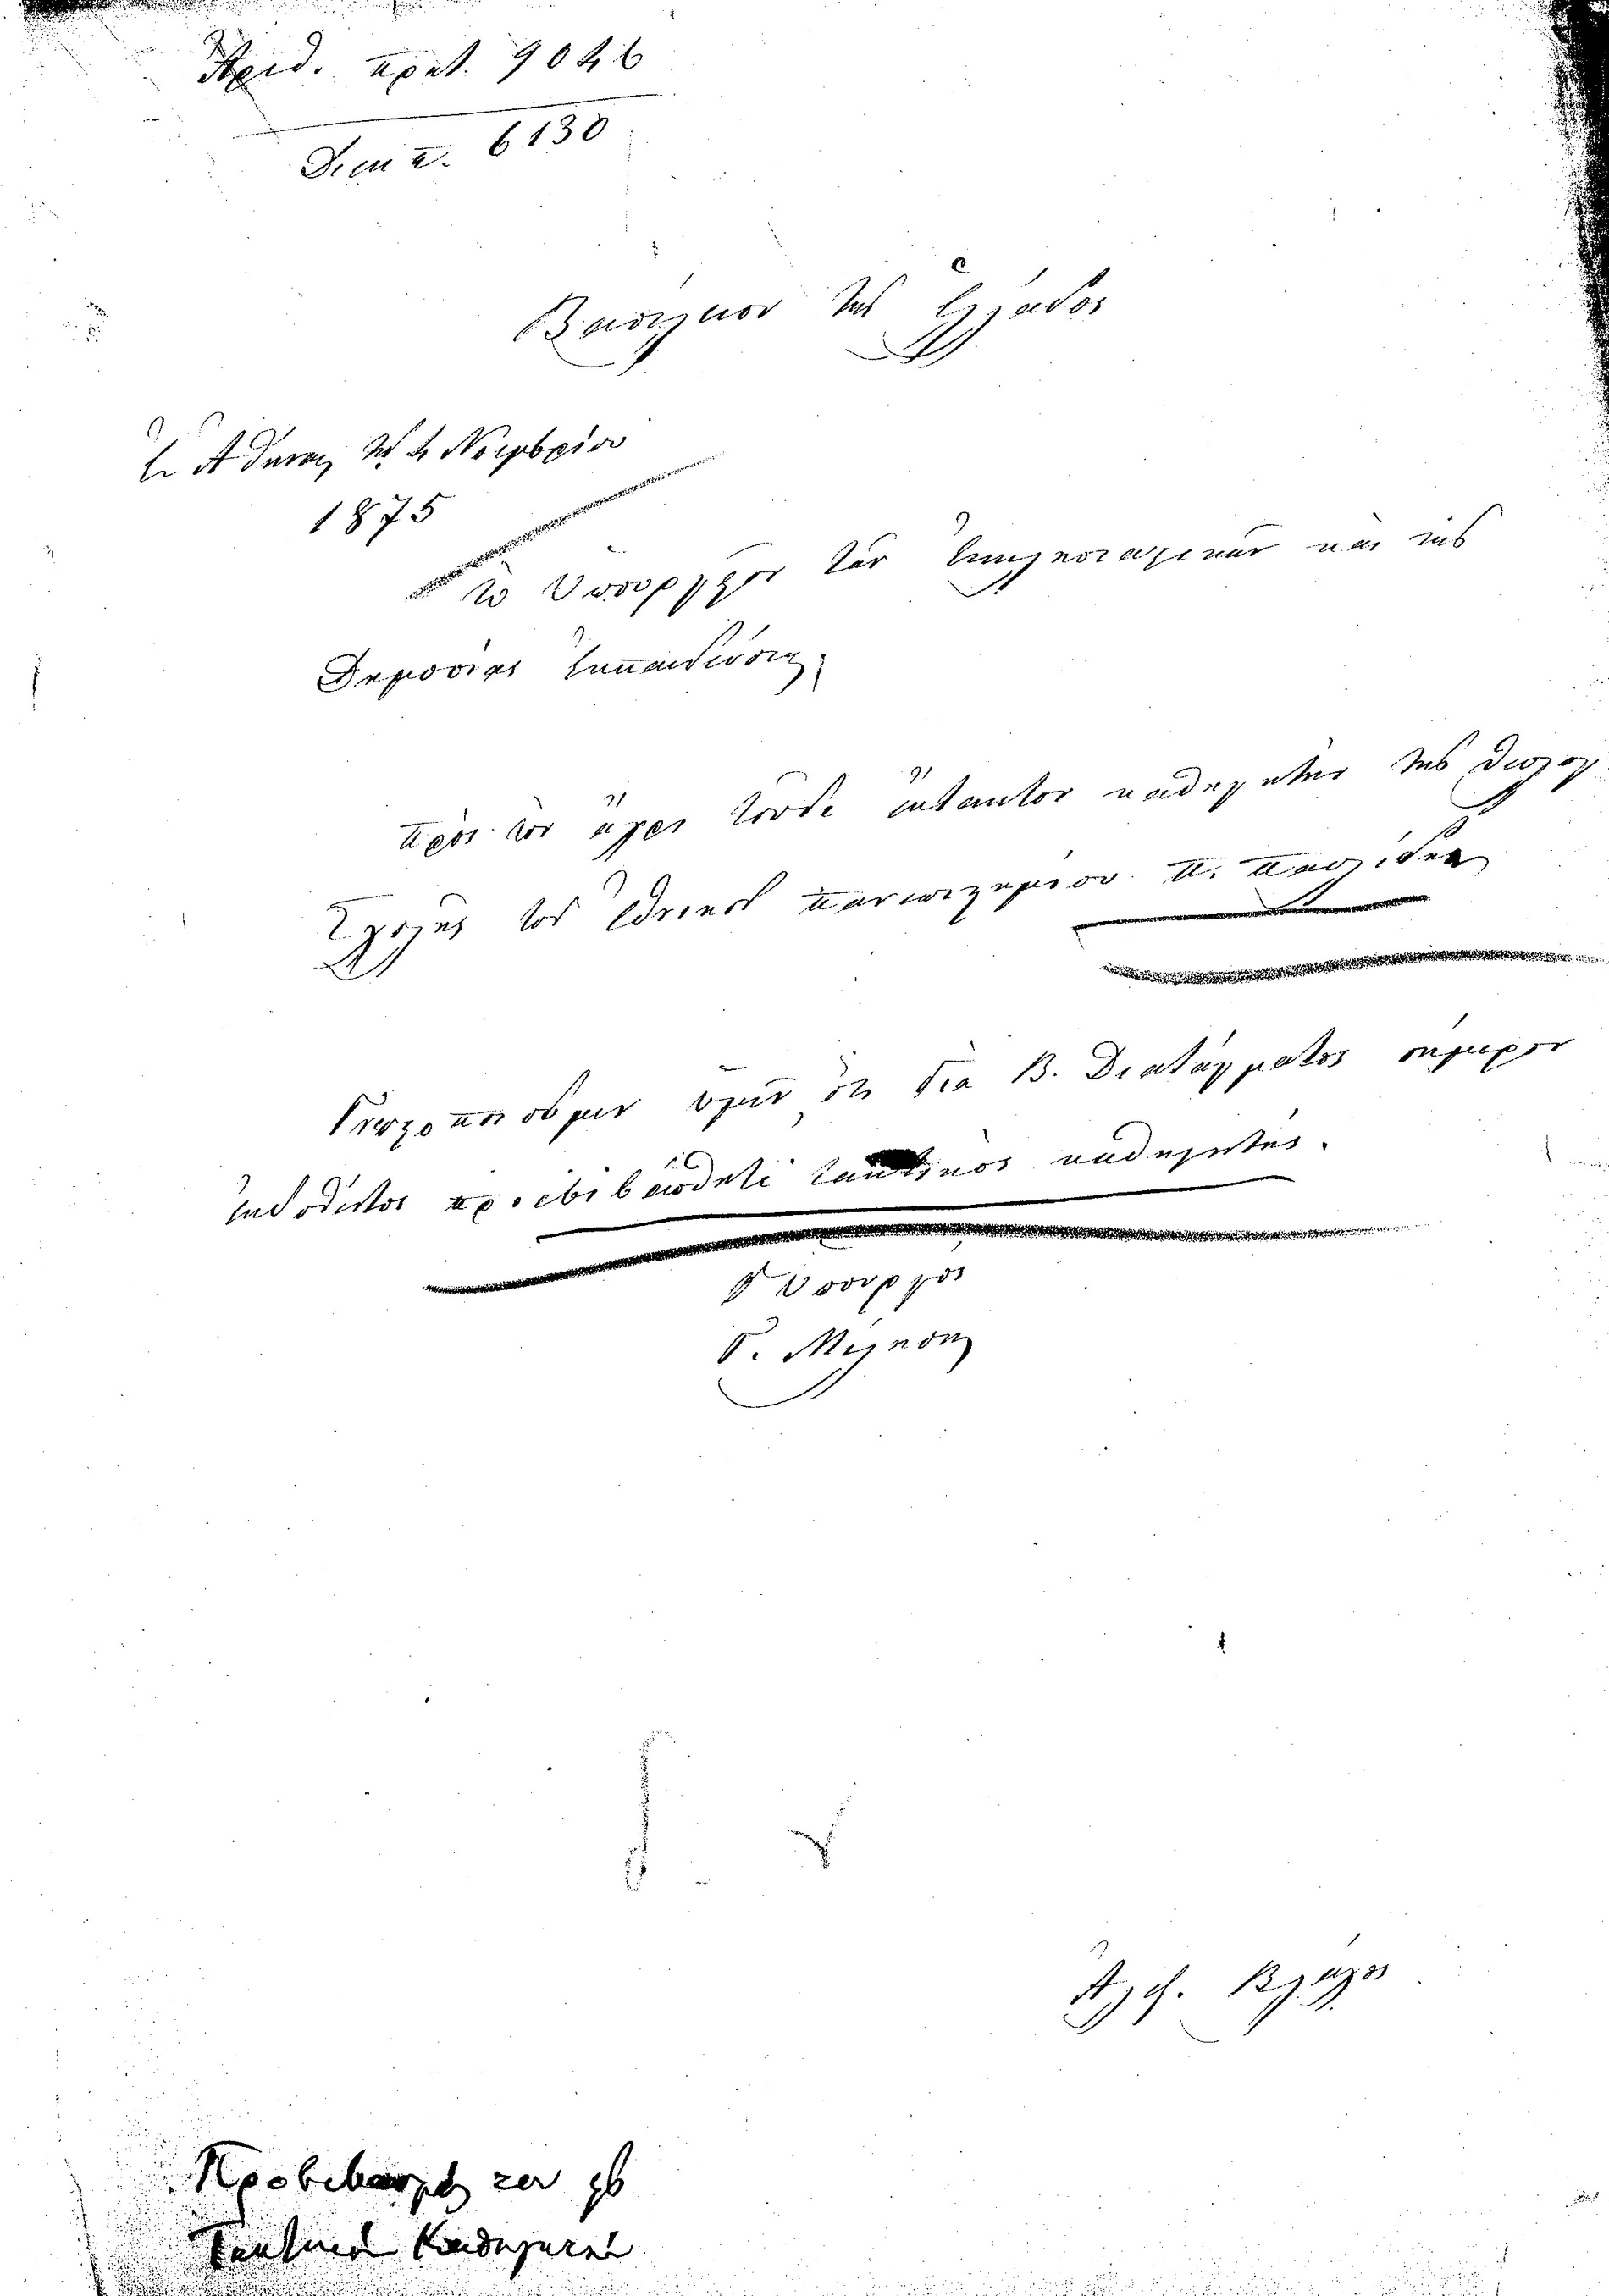 Ἀριθ. πρωτ. 9046
Διεκπ. 6130
Βασίλειον τῆς Ἑλλάδος
Ἐν Ἀθήναις τῇ 4 Νοεμβρίου
1875
Τὸ Ὑπουργεῖον τῶν Ἐκκλησιαστικῶν καὶ τῆς
Δημοσίας Ἐκπαιδεύσεως
Πρὸς τὸν ἄχρι τοῦδε ἔκτακτον καθηγητὴν τῆς Θεολογ
Σχολῆς τοῦ Ἐθνικοῦ Πανεπιστημίου Π. Παυλίδην
Γνωστοποιοῦμεν ὑμῖν ὅτι διὰ Β. Διατάγματος σήμερον
ἐκδοθέντος προεβιβάσθητε τακτικὸς καθηγητής.
Ὁ Ὑπουργὸς
Γ. Μίληση
Ἀλέξ. Βλάχος
Προβιβασμὸς
Τακτικοῦ Καθηγητοῦ